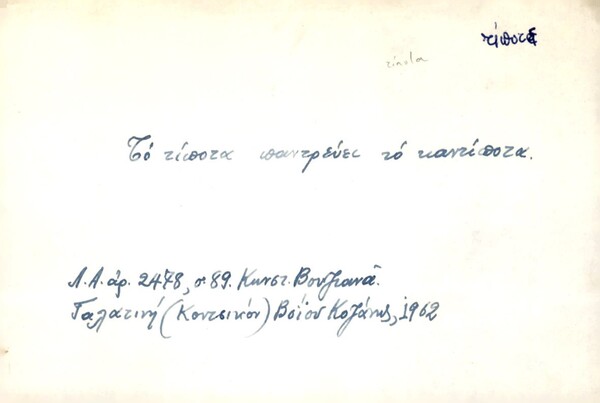 τίποτε
τίποτα
Τό τίποτα παντρεύει τό καντίποτα.
Λ.Α. άρ. 2478, σ. 89. Κωνστ. Βουζιανᾶ.
Γαλατινή (Κοντσικόν) Βοΐου Κοζάνης, 1962